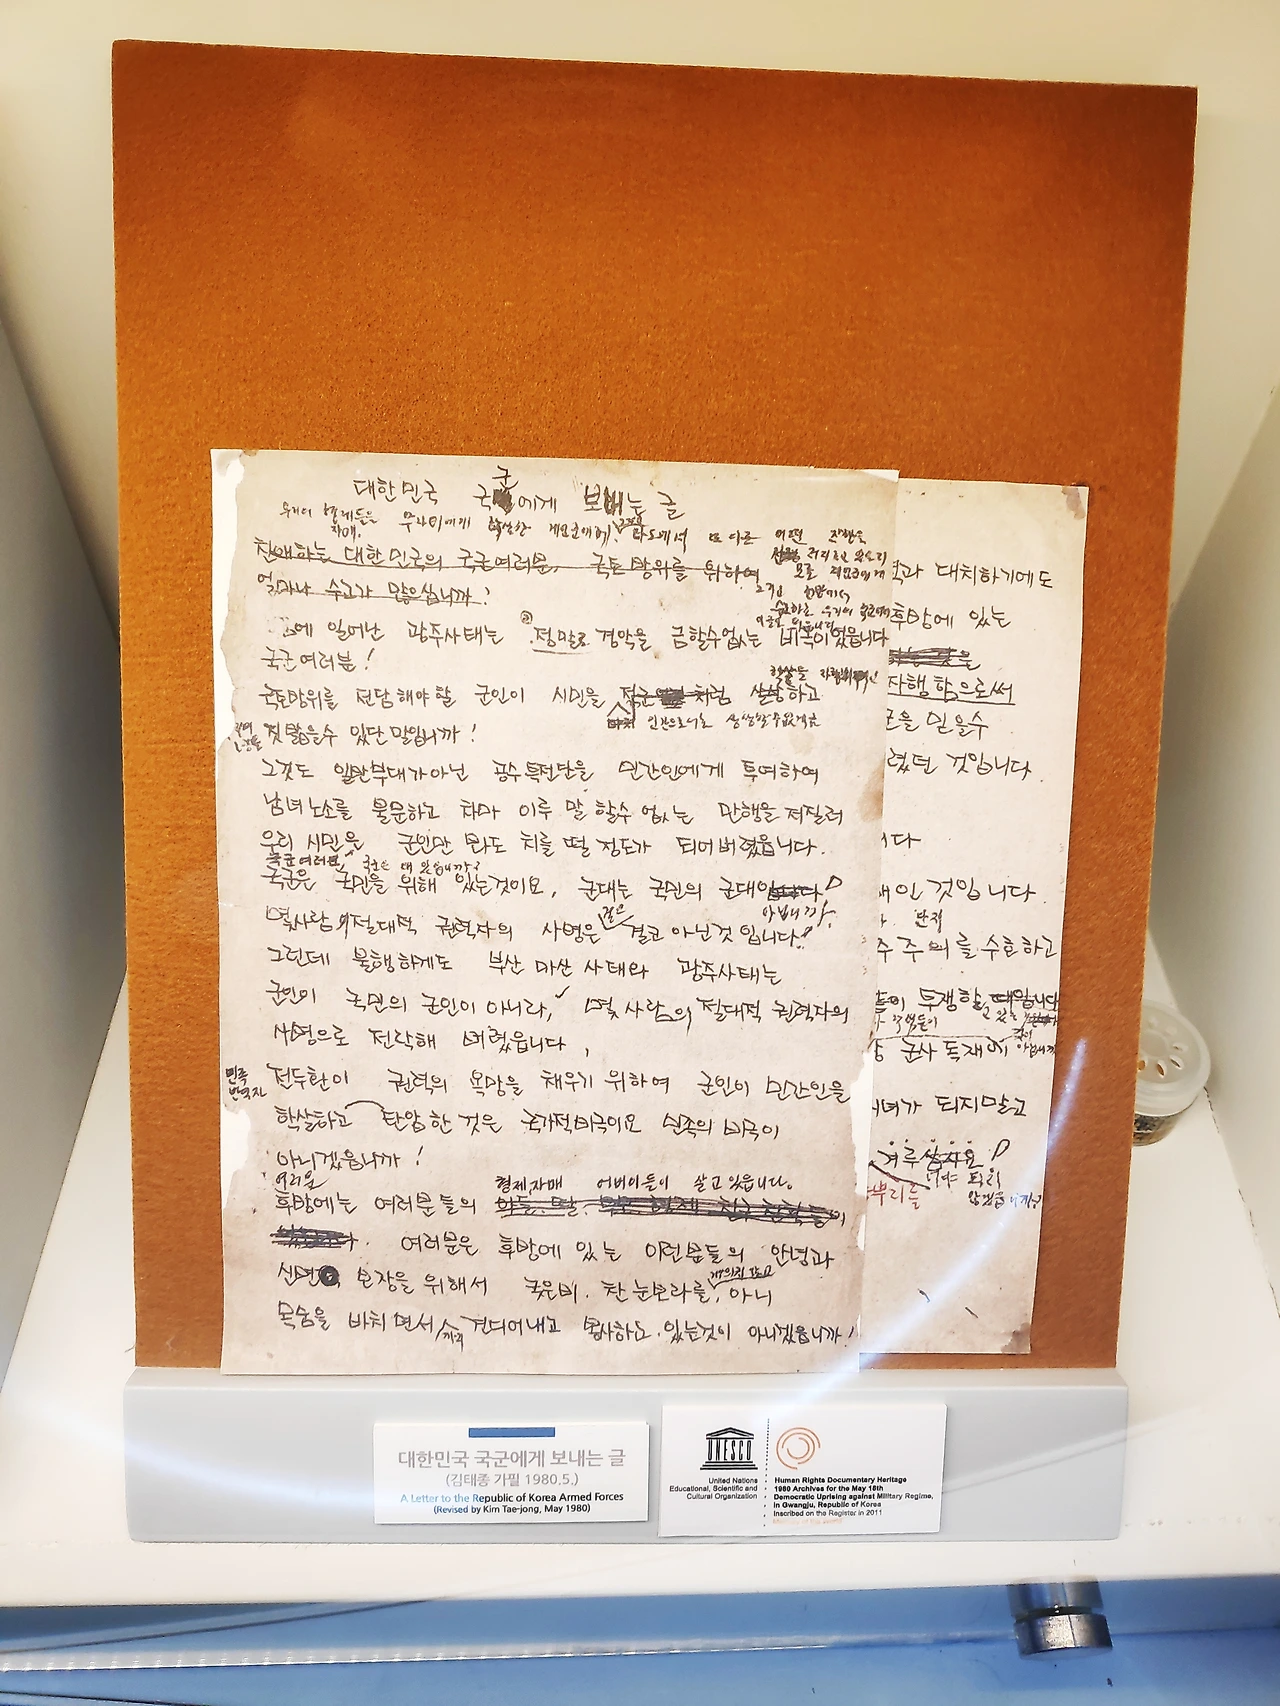 대한민국 국군에게 보내는 글
우리의 형제들을 무자비하게 학살한 계엄군에게!
친애하는 대한민국의 국군여러분, 국토방위를 위하여
얼마나 수고가 많으십니까!
에 일어난 광주사태는 정말로 경악을 금할수없는 비극이였읍니다
국군여러분!
국토방위를 전담해야할 군인이 시민을 적군 처럼 살상하고
인간으로서는 상상할수없게끔
짓밟을수 있단말입니까!
그것도 일반부대가아닌 공수특전단을 민간인에게 투여하여
남녀노소를 불문하고 차마 이루 말할수 없는 만행을 저질러
우리 시민은 군인만 봐도 치를 떨 정도가 되어버렸읍니다.
국군여러분,
국군은 국민을 위해 있는것이요, 군대는 국민의 군대입니다
아닙니까
몇사람의 절대적 권력자의 사병은 결코 아닌것 입니다.
그런데 불행하게도 부산 마산 사태와 광주사태는
군인이 국민의 군인이 아니라, 몇 사람의 절대적 권력자의
사병으로 전락해 버렸읍니다,
민족
반역자
전두환이 권력의 욕망을 채우기 위하여 군인이 민간인을
학살하고 탄압한 것은 국가적비극이요 민족의 비극이
아니겠읍니까!
형제,자매 어버이들이 살고있읍니다.
후방에는 여러분들의
여러분은 후방에 있는 이런분들의 안녕과
신변 보장을 위해서 궂은비, 찬 눈보라를, 아니
목숨을 바치면서 까지 견디어내고 봉사하고 있는것이 아니겠읍니까!
과 대치하기에도
후방에 있는
자행함으로써
군을 믿을수
렸던 것입니다.
니다
재인것입니다.
주주의를 수호하고
들이 투쟁할 때입니다
군사독재
녀가 되지말고
겨루십시요!
뿌리를
대한민국 국군에게 보내는 글
(김태종 가필 1980.5.)
A Letter to the Republic of Korea Armed Forces
(Revised by Kim Tae-jong, May 1980)
UNESCO
United Nations
Educational, Scientific and
Cultural Organization
Human Rights Documentary Heritage
1980 Archives for the May 18th
Democratic Uprising against Military Regime,
in Gwangju, Republic of Korea
Inscribed on the Register in 2011
Memory of the World